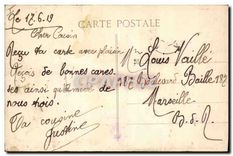 CARTE POSTALE
Le 17.6.19
Cher Cousin
Reçu ta carte avec plaisir
Reçois de bonnes
ainsi de
nous trois.
Ta cousine
Justine
Louis Vaillé
Boulevard Baille 187
Marseille
B.d.R